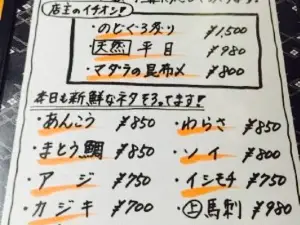 店主のイチオシ!
・のどぐろ炙り ¥1,500
・天然 平目 ¥980
・マダラの昆布〆 ¥800
本日も新鮮なネタそろってます!
・あんこう ¥850
・わらさ ¥850
・まとう鯛 ¥850
・ソイ ¥800
・アジ ¥750
・イシモチ ¥750
・カジキ ¥700
・上馬刺 ¥980